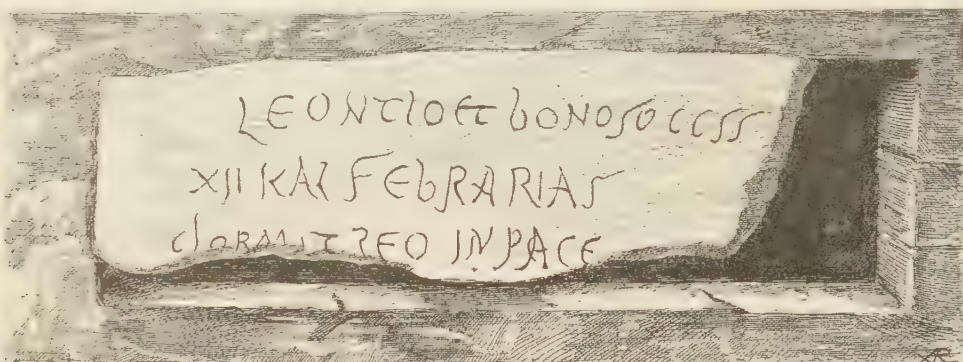 LEONTIO et bONOSO CCSS
XII KAL FEbRARIAS
dORMIT REO IN PACE